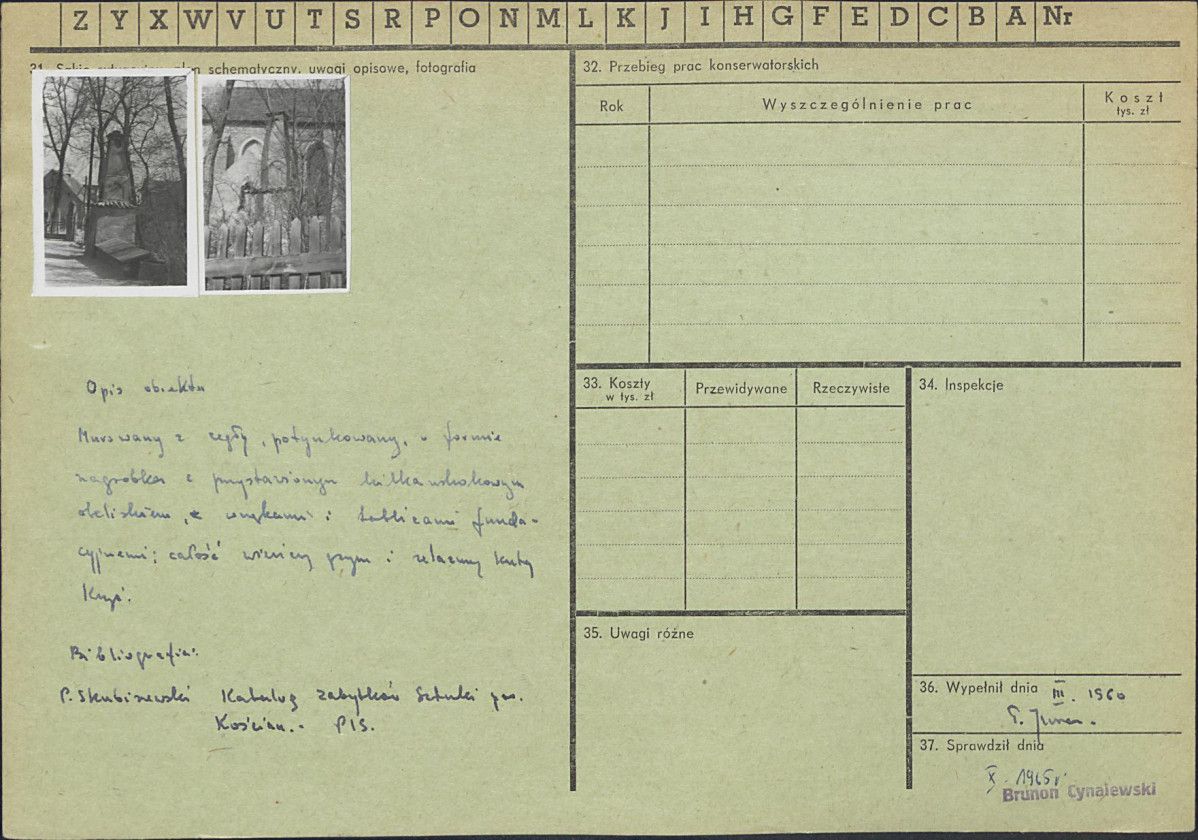 Z Y X W V U T S R P O N M L K J I H G F E D C B A Nr
schematyczny, uwagi opisowe, fotografia
Opis obiektu
Murowany z cegły, potynkowany, o formie
nagrobka z przystawionym kilkauskokowym
obeliskiem, z wnękami i tablicami funda-
cyjnemi; całość wieńczy i żelazny kuty
Krzyż.
Bibliografia:
P. Skubiszewski Katalog Zabytków Sztuki pow.
Kościan. - PIS.
32. Przebieg prac konserwatorskich
Rok Wyszczególnienie prac Koszt
tys. zł
33. Koszty Przewidywane Rzeczywiste
w tys. zł
34. Inspekcje
35. Uwagi różne
36. Wypełnił dnia III. 1960
37. Sprawdził dnia
X. 1965 r.
Brunon Cynalewski